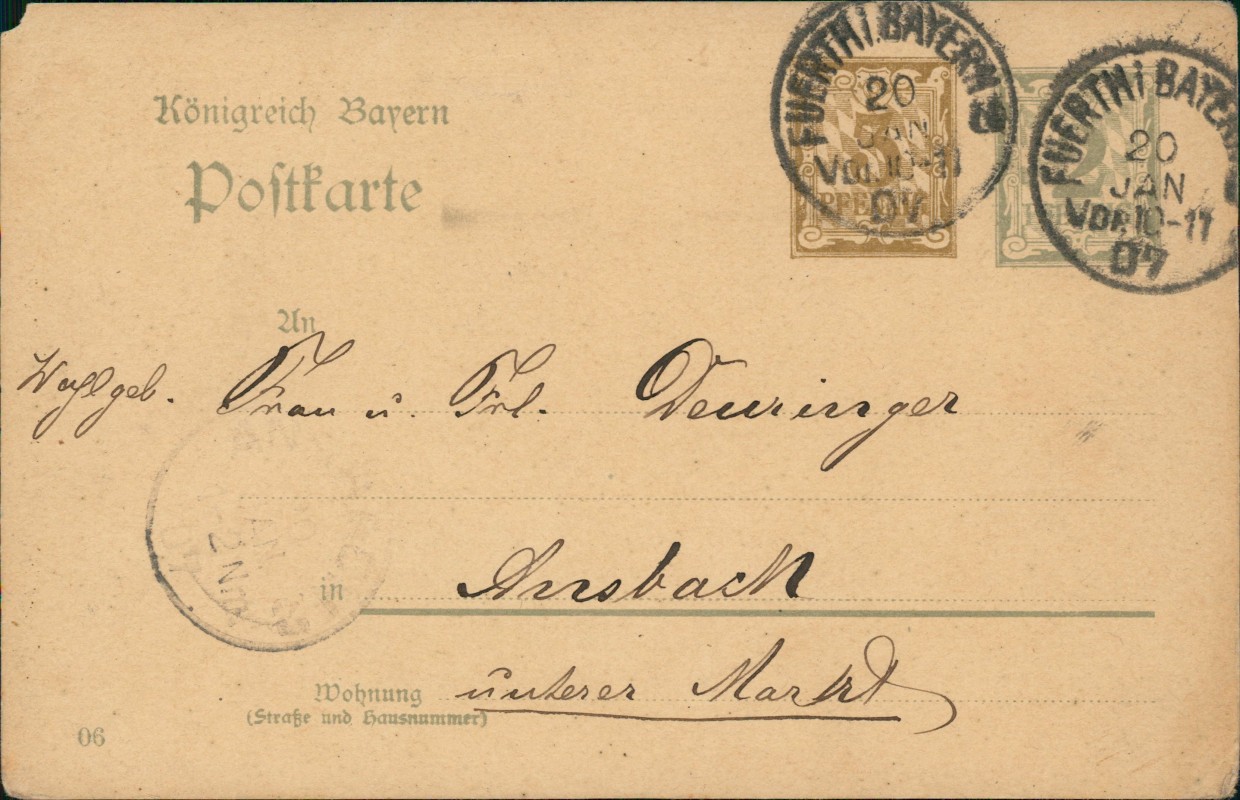 FUERTH i. BAYERN
20
JAN
Vor.10-11
07
FUERTH i. BAYERN
20
JAN
Vor.10-11
07
Königreich Bayern
Postkarte
3
PFENNIG
2
An
Wohlgeb. Frau u. Frl. Deuringer
JAN
2 Nm
07
in Ansbach
Wohnung unterer Markt
(Straße und Hausnummer)
06